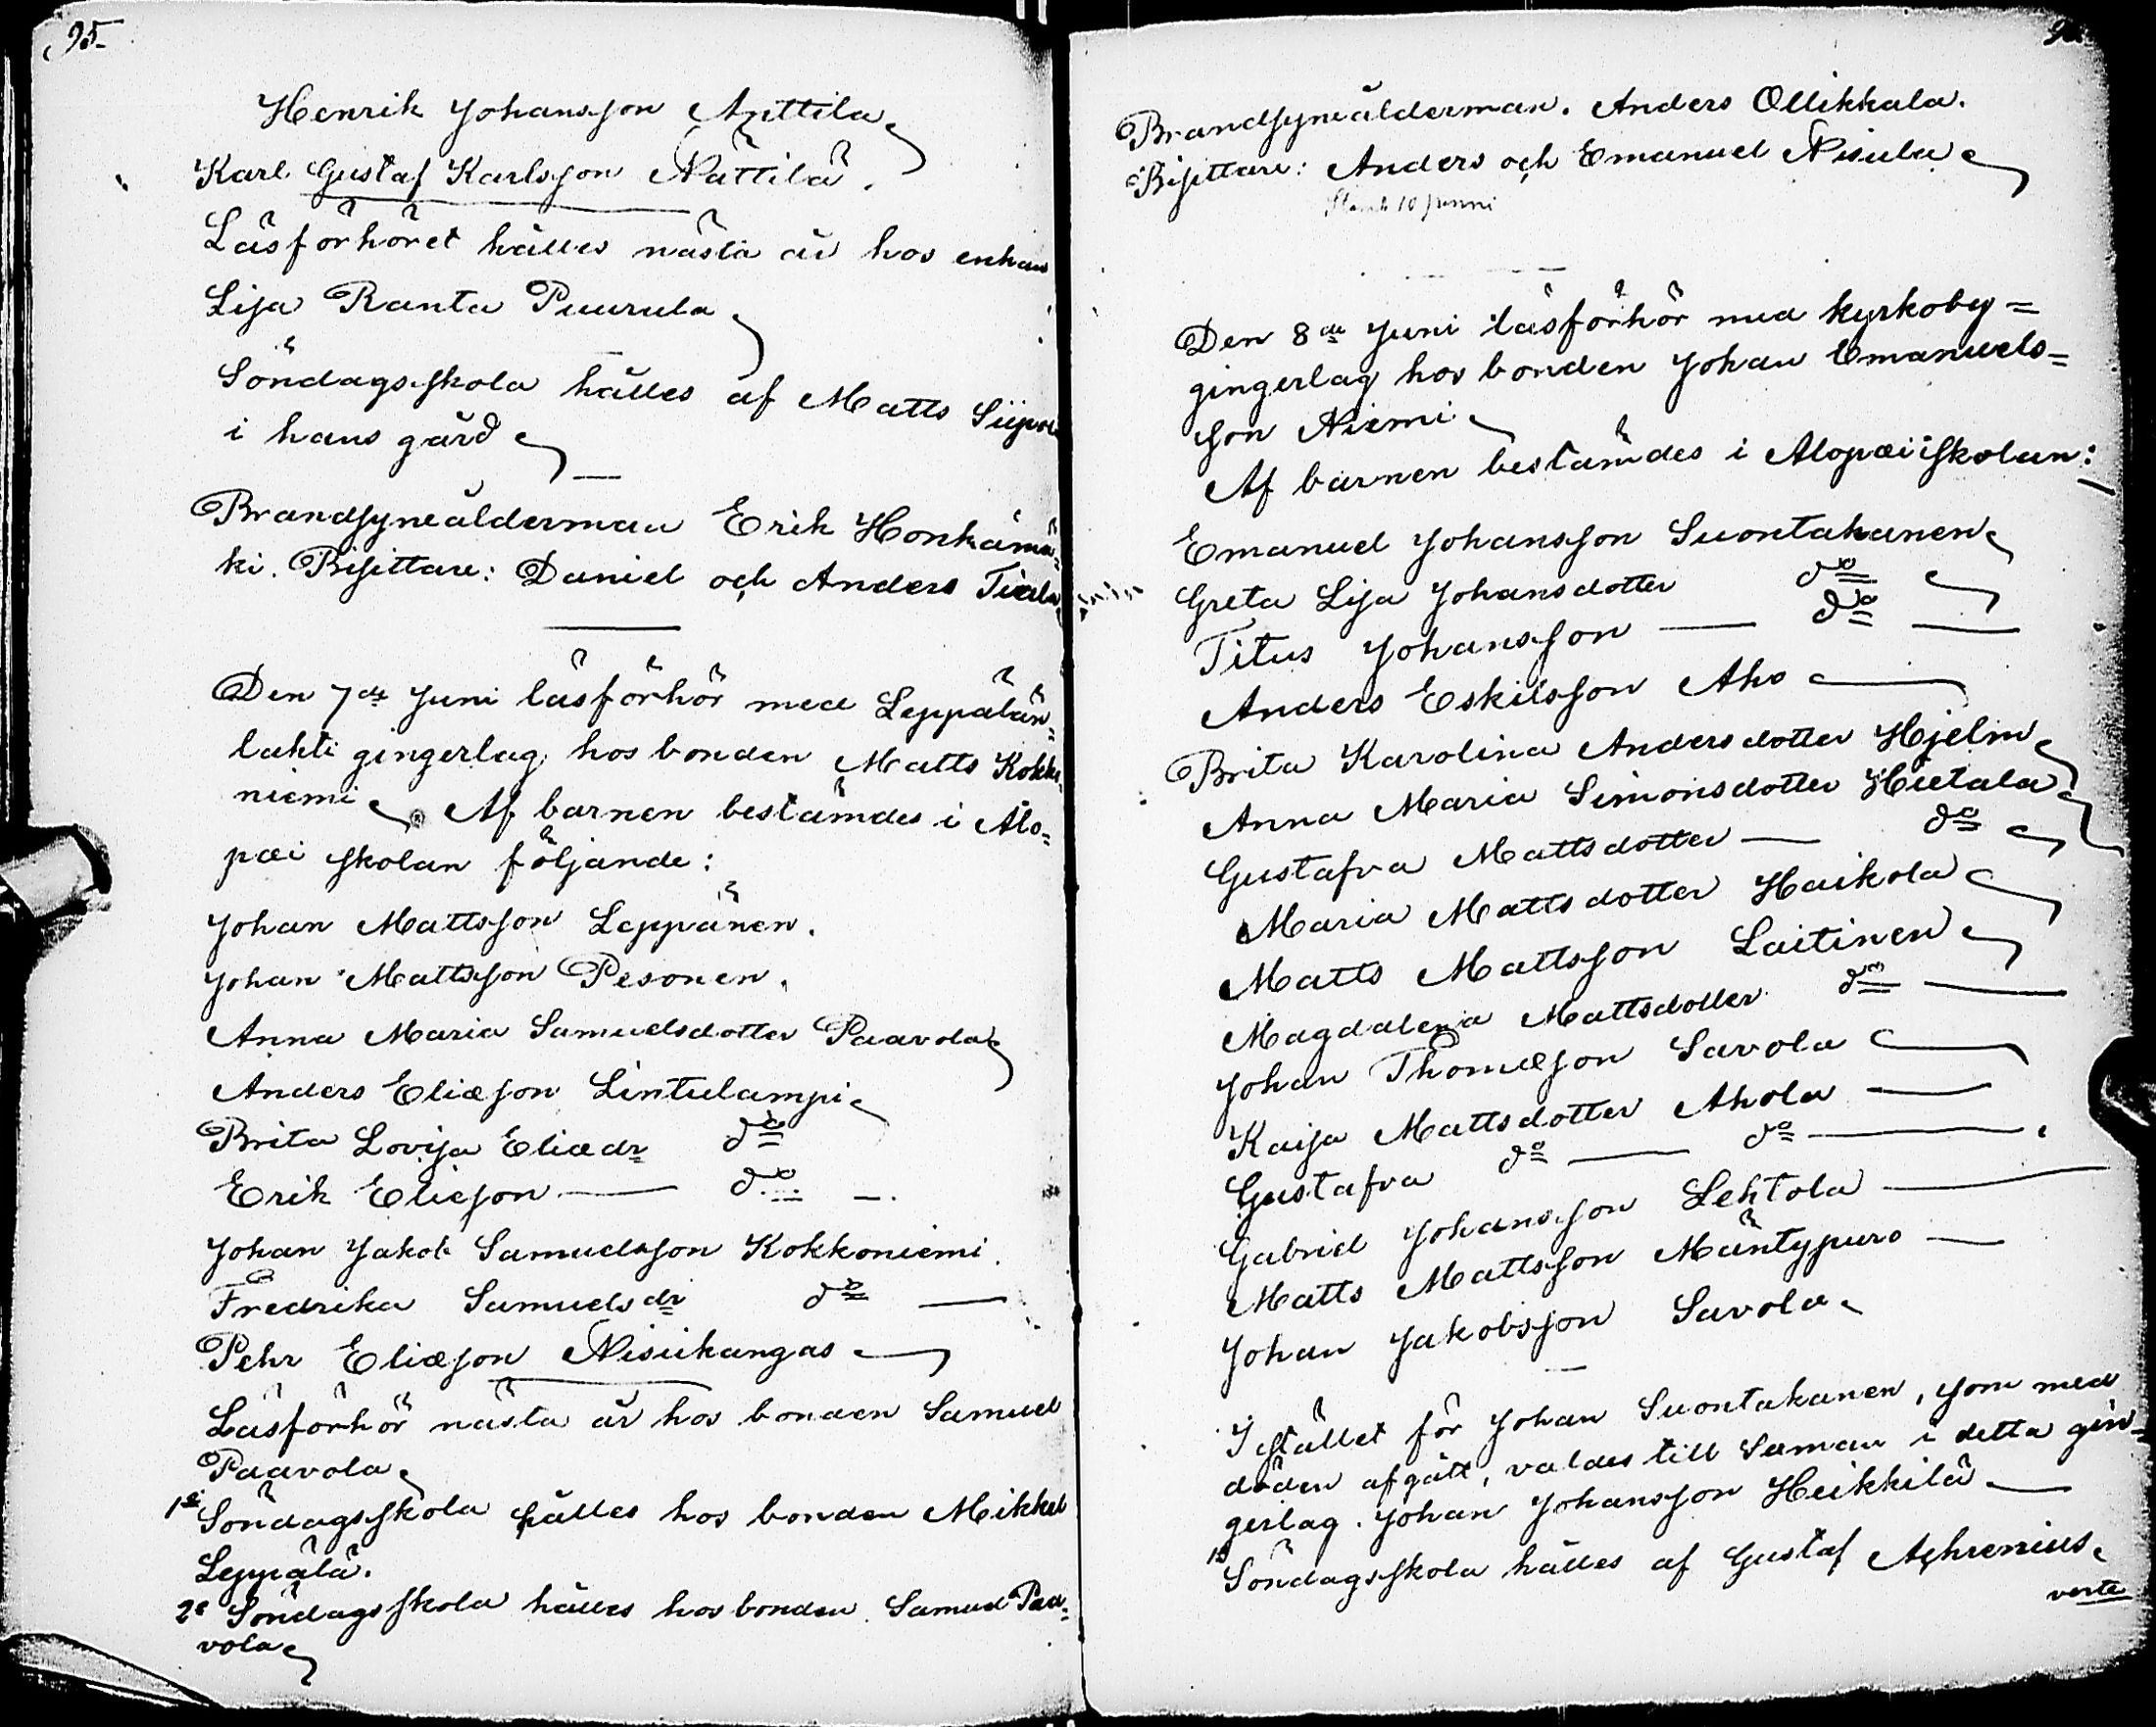 95.
Henrik Johansson Anttila
Karl Gustaf Karlsson Nättilä.
Läsförhöret hålles nästa år hos enkan
Lisa Ranta Puurula
Söndagsskola hålles af Matts Siipo
i hans gård
Brandsyneålderman Erik Honkamä-
ki. Bisittare: Daniel och Anders Tiala
Den 7de Juni läsförhör med Leppälän=
lahti gingerlag hos bonden Matts Kokko-
niemi Af barnen bestämdes i Alo=
pæi skolan följande:
Johan Mattsson Leppänen.
Johan Mattsson Pesonen.
Anna Maria Samuelsdotter Paavola
Anders Eliæson Lintulampi
Brita Lovisa Eliædr do
Erik Eliæson — do —.
Johan Jakob Samuelsson Kokkoniemi.
Fredrika Samuelsdr do —
Pehr Eliæson Nisukangas
Läsförhör nästa år hos bonden Samuel
Paavola
1o Söndagsskola hålles hos bonden Mikkel
Leppälä.
2o Söndagsskola hålles hos bonden Samuel Paa=
vola
Brandsyneålderman. Anders Ollikkala.
Bisittare: Anders och Emanuel Nisula
10 Junni
Den 8de Juni läsförhör med kyrkoby=
gingerlag hos bonden Johan Emanuels=
son Niemi
Af barnen bestämdes i Alopæi skolan:
Emanuel Johansson Suontakanen
Greta Lisa Johansdotter do
Titus Johansson — do —
Anders Eskilsson Aho
Brita Karolina Andersdotter Hjelm
Anna Maria Simonsdotter Hietala
Gustafva Mattsdotter — do
Maria Mattsdotter Haikola
Matts Mattsson Laitinen
Magdalena Mattsdotter do —
Johan Thomæson Savola
Kaisa Mattsdotter Ahola —
Gustafva do — do —.
Gabriel Johansson Lehtola —
Matts Mattsson Mäntypuro —
Johan Jakobsson Savola
I stället för Johan Suontakanen, som med
döden afgått, valdes till Sexman i detta gin=
gerlag. Johan Johansson Heikkilä —
1o Söndagsskola hålles af Gustaf Achrenius.
verte